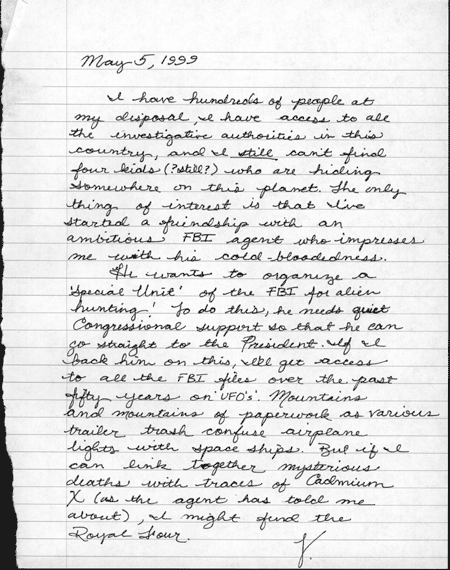 May 5, 1999
I have hundreds of people at
my disposal, I have access to all
the investigative authorities in this
country, and I still can't find
four kids (?still?) who are hiding
somewhere on this planet. The only
thing of interest is that I've
started a friendship with an
ambitious FBI agent who impresses
me with his cold-bloodedness.
He wants to organize a
'Special Unit' of the FBI for alien
hunting! To do this, he needs quiet
Congressional support so that he can
go straight to the President. If I
back him on this, I'll get access
to all the FBI files over the past
fifty years on 'UFO's'. Mountains
and mountains of paperwork as various
trailer trash confuse airplane
lights with space ships. But if I
can link together mysterious
deaths with traces of Cadmium
X (as the agent has told me
about), I might find the
Royal Four.